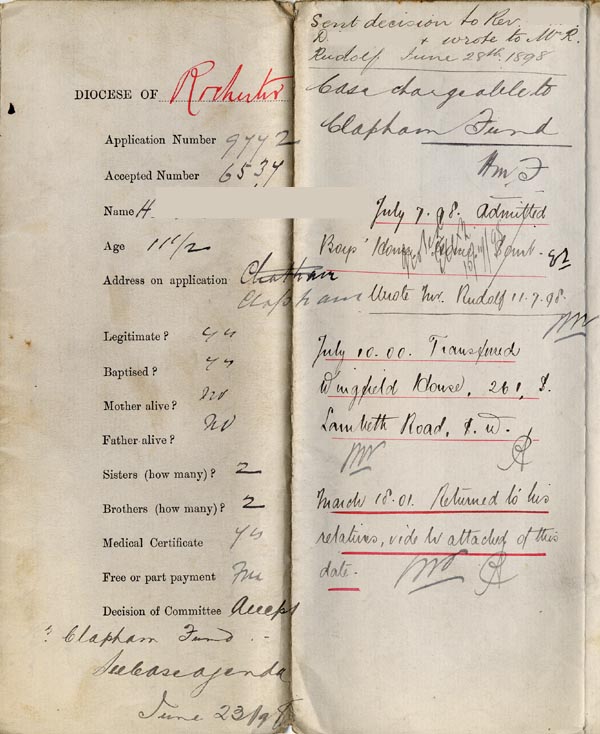 DIOCESE OF Rochester
Application Number 9742
Accepted Number 6537
Name H.
Age 11 1/2
Address on application Chatham
Clapham
Legitimate? yes
Baptised? yes
Mother alive? no
Father alive? no
Sisters (how many)? 2
Brothers (how many)? 2
Medical Certificate yes
Free or part payment Free
Decision of Committee Accept
Clapham Fund
See Case agenda
June 23/98
Sent decision to Rev.
D. + wrote to Mr R.
Rudolf June 28th 1898
Case chargeable to
Clapham Fund
July 7. 98. Admitted
Boys' Home
Wrote Mr. Rudolf 11.7.98.
July 10.00. Transferred
Wingfield House, 261, S.
Lambeth Road, S.W.
March 18.01. Returned to his
relatives, vide lr attached of this
date.